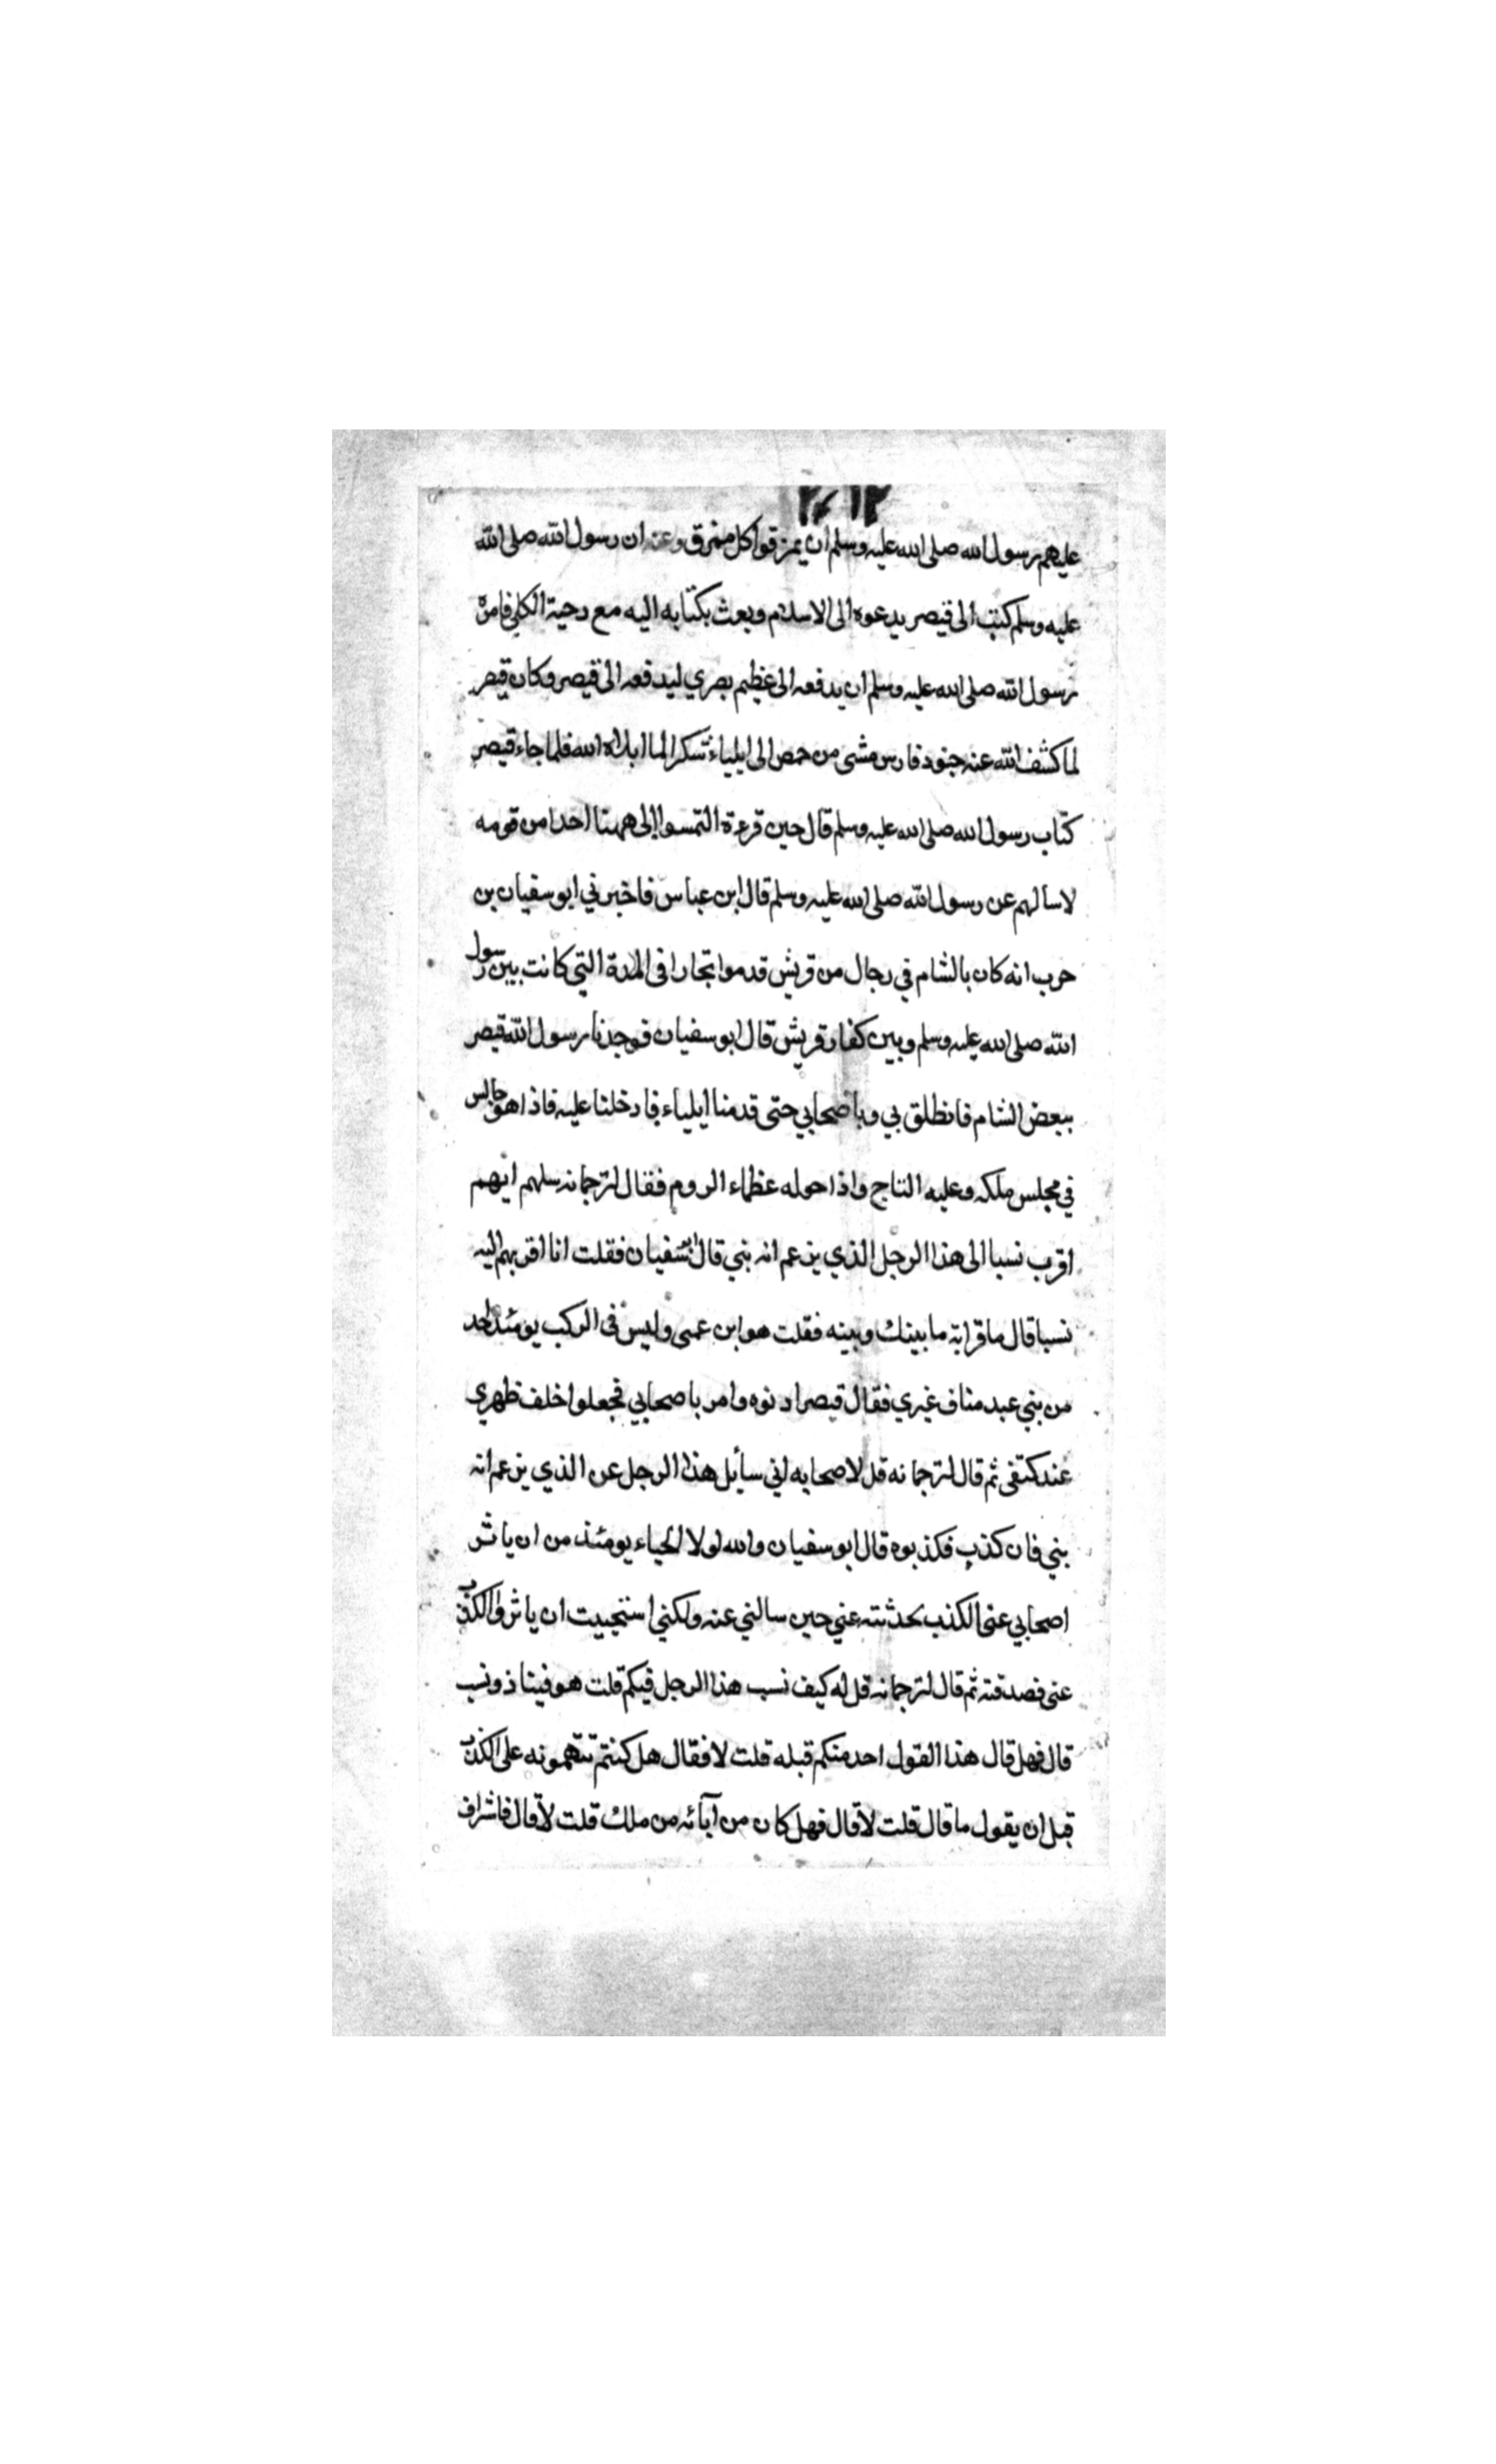 عليهم رسول الله صلى الله عليه وسلم ان يمزقوا كل ممزق وعنه ان رسول الله صلى الله
عليه وسلم كتب الى قيصر يدعوه الى الاسلام وبعث بكتابه اليه مع دحية الكلبي فامره
رسول الله صلى الله عليه وسلم ان يدفعه الى عظيم بصري ليدفعه الى قيصر وكان قيصر
لما كشف الله عنه جنود فارس مشى من حمص الى ايلياء شكرا لما ابلاه الله فلما جاء قيصر
كتاب رسول الله صلى الله عليه وسلم قال حين قرءة التمسوا الي ههنا احدا من قومه
لاسالهم عن رسول الله صلى الله عليه وسلم قال ابن عباس فاخبرني ابو سفيان بن
حرب انه كان بالشام في رجال من قريش قدموا تجارا في المدة التي كانت بين رسول
الله صلى الله عليه وسلم وبين كفار قريش قال ابو سفيان فوجدنا رسول الله قيصر
ببعض الشام فانطلق بي وباصحابي حتى قدمنا ايلياء فادخلنا عليه فاذا هو جالس
في مجلس ملكه وعليه التاج واذا حوله عظماء الروم فقال لترجمانه سلهم ايهم
اقرب نسبا الى هذا الرجل الذي يزعم انه نبي قال ابو سفيان فقلت انا اقربهم اليه
نسبا قال ما قرابة ما بينك وبينه فقلت هو ابن عمى وليس في الركب يومئذ احد
من بني عبد مناف غيري فقال قيصر ادنوه وامر باصحابي فجعلوا خلف ظهري
عند كتفى ثم قال لترجمانه قل لاصحابه اني سأيل هذا الرجل عن الذي يزعم انه
نبي فان كذب فكذبوه قال ابو سفيان والله لولا الحياء يومئذ من ان ياثر
اصحابي عنى الكذب لحدثته عني حين سالني عنه ولكني استحييت ان ياثروا الكذب
عنى فصدقته ثم قال لترجمانه قل له كيف نسب هذا الرجل فيكم قلت هو فينا ذو نسب
قال فهل قال هذا القول احد منكم قبله قلت لا فقال هل كنتم تتهمونه على الكذب
قبل ان يقول ما قال قلت لا قال فهل كان من آبائه من ملك قلت لا قال فاشراف